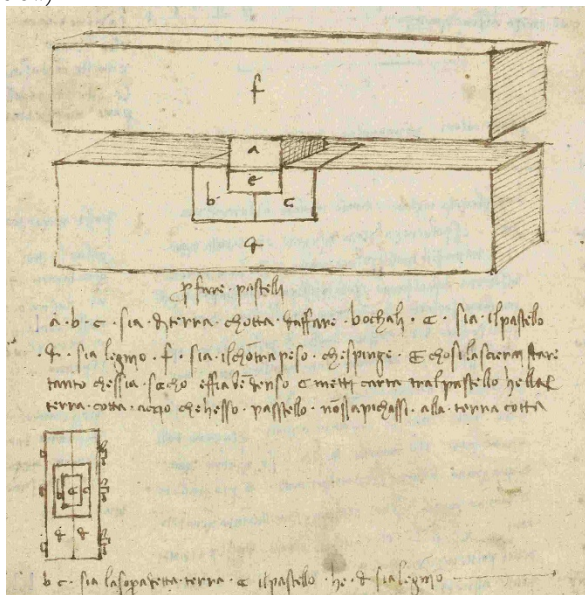 f
a
e
b c
d
p fare · pastelli
a · b · c · sia · di terra · chotta · daffare · bochali · e · sia · il pastello
· d · sia legnio · f · sia · il chontrapeso · che spinge · E chosi lascerai stare
tanto che ssia · seccho · effia denso e metti carta tral pastello hella
terra · cotta · accio che hesso · passtello · nō ssapichassi · alla · terra cotta
b e c
d d
b c · sia la sopra detta · terra · e il pastello · he · d sia legnio